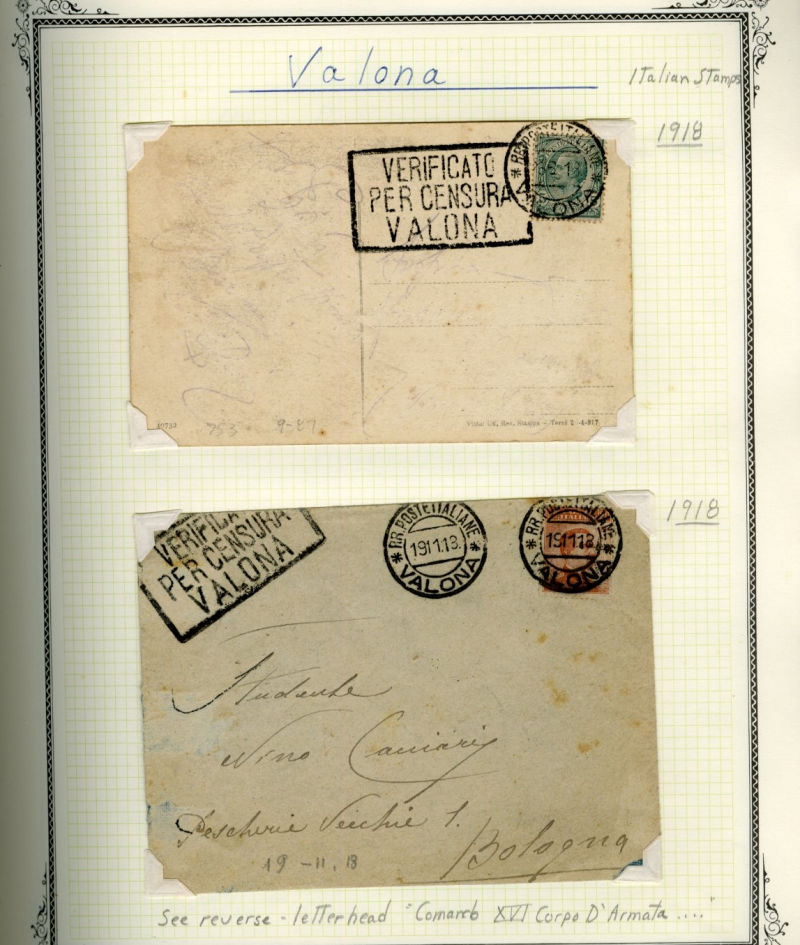 Valona
Italian Stamps
1918
VERIFICATO
PER CENSURA
VALONA
RR.POSTE ITALIANE
VALONA
10733
353 9-87
Visto Uff. Rev. Stampa - Terni 2 -4-917
1918
VERIFICA
PER CENSURA
VALONA
RR.POSTE ITALIANE
19 11.18.
VALONA
RR.POSTE ITALIANE
19 11.18.
VALONA
Studente
Nino
Pescherie Vecchie 1.
Bologna
19-11.18
See reverse - letterhead "Comando XVI Corpo D'Armata ...."